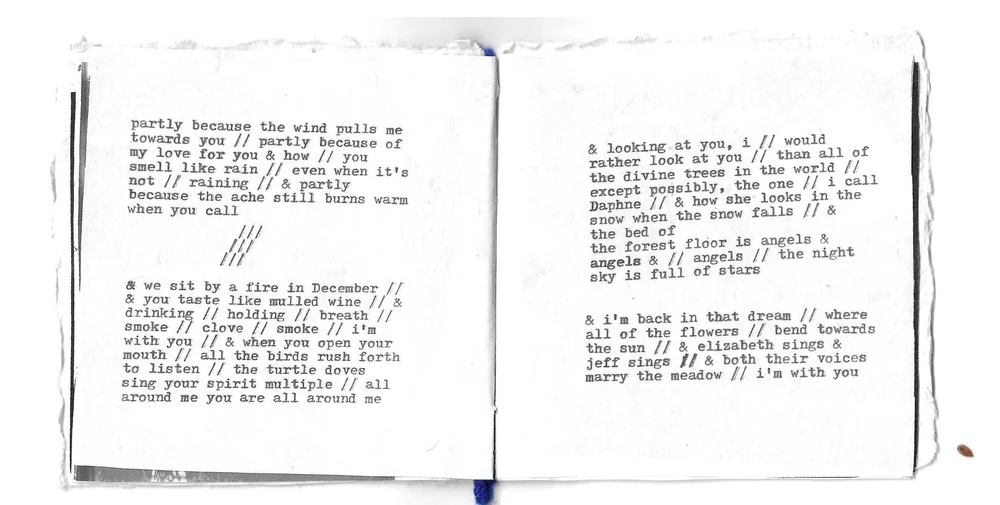 partly because the wind pulls me
towards you // partly because of
my love for you & how // you
smell like rain // even when it's
not // raining // & partly
because the ache still burns warm
when you call
///
///
///
& we sit by a fire in December //
& you taste like mulled wine // &
drinking // holding // breath //
smoke // clove // smoke // i'm
with you // & when you open your
mouth // all the birds rush forth
to listen // the turtle doves
sing your spirit multiple // all
around me you are all around me
& looking at you, i // would
rather look at you // than all of
the divine trees in the world //
except possibly, the one // i call
Daphne // & how she looks in the
snow when the snow falls // &
the bed of
the forest floor is angels &
angels & // angels // the night
sky is full of stars
& i'm back in that dream // where
all of the flowers // bend towards
the sun // & elizabeth sings &
jeff sings // & both their voices
marry the meadow // i'm with you